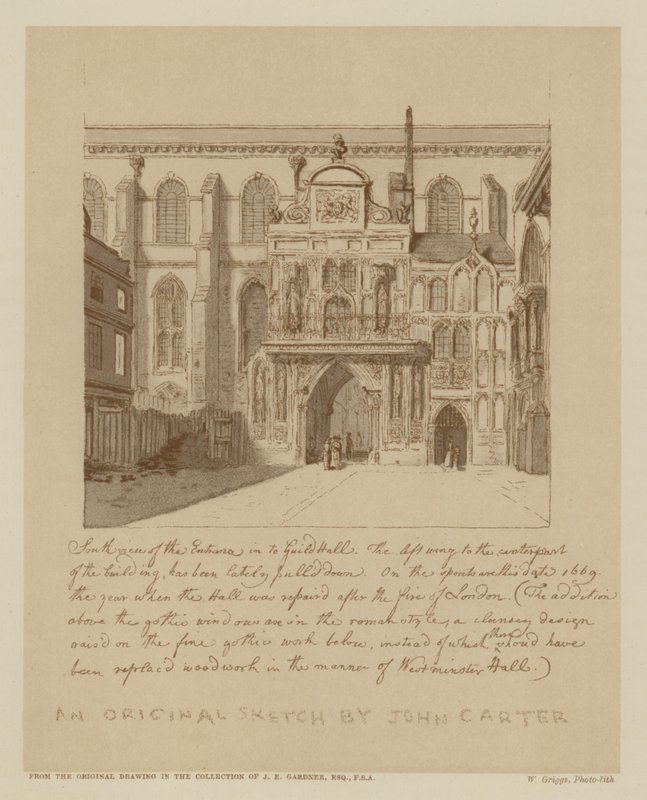 South view of the Entrance in to Guild Hall. The left wing to the centerpart
of the building, has been lately pulld down. On the spouts are this date 1669.
the year when the Hall was repaird after the fire of London. (The addition
above the gothic windows are in the roman style, a clumsey design
rais'd on the fine gothic work below, instead of which there shou'd have
been replac'd wood work in the manner of Westminster Hall.)
AN ORIGINAL SKETCH BY JOHN CARTER
FROM THE ORIGINAL DRAWING IN THE COLLECTION OF J. E. GARDNER, ESQ., F.S.A.
W. Griggs, Photo-lith.